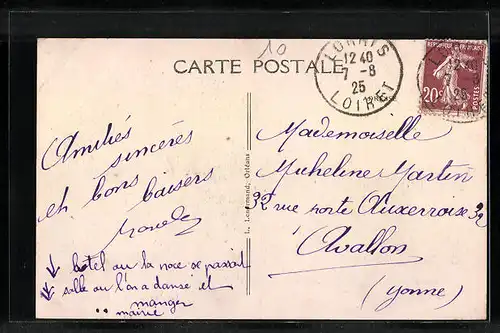 10
CARTE POSTALE
LORRIS
12 40
7 - 8
25
LOIRET
REPUBLIQUE FRANÇAISE
20c
POSTES
12 40
25
Amitiés
sincères
et bons baisers
↓ hotel ou la noce se passait
↓ salle ou l'on a dansé et
manger
" mairie
L. Lenormand, Orléans
Mademoiselle
Micheline Martin
32 rue porte Auxerroise 32
Avallon
(Yonne)